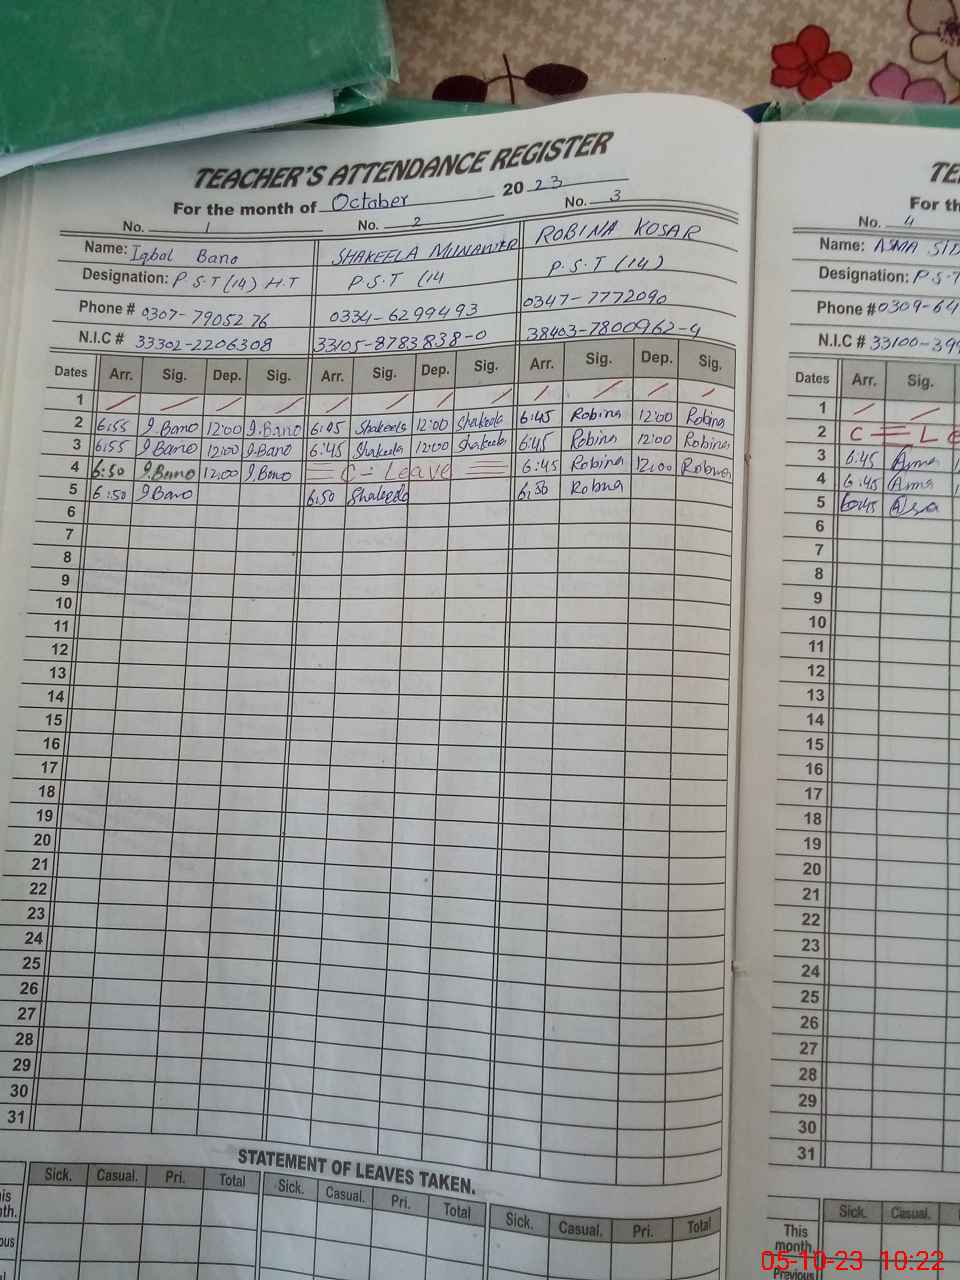 TEACHER'S ATTENDANCE REGISTER
For the month of October 2023
No. 1 No. 2 No. 3
Name: Iqbal Bano SHAKEELA MUNAWER ROBINA KOSAR
Designation: P.S.T (14) H.T P.S.T (14 P.S.T (14)
Phone # 0307-7905276 0334-6299493 0347-7772090
N.I.C # 33302-2206308 33105-8783838-0 38403-7800962-4
Dates Arr. Sig. Dep. Sig. Arr. Sig. Dep. Sig. Arr. Sig. Dep. Sig.
1
2 6:55 I.Bano 12:00 I.Bano 6:45 Shakeela 12:00 Shakeela 6:45 Robina 12:00 Robina
3 6:55 I.Bano 12:00 I.Bano 6:45 Shakeela 12:00 Shakeela 6:45 Robina 12:00 Robina
4 6:50 I.Bano 12:00 I.Bano C - Leave 6:45 Robina 12:00 Robina
5 6:50 I.Bano 6:50 Shakeela 6:50 Robina
6
7
8
9
10
11
12
13
14
15
16
17
18
19
20
21
22
23
24
25
26
27
28
29
30
31
STATEMENT OF LEAVES TAKEN.
Sick. Casual. Pri. Total Sick. Casual. Pri. Total Sick. Casual. Pri. Total
TE
For th
No. 4
Name: ASMA
Designation: P.S.T
Phone # 0309-64
N.I.C # 33100-399
Dates Arr. Sig.
1
2 C Le
3 6:45 Asma
4 6:45 Asma
5 6:45
6
7
8
9
10
11
12
13
14
15
16
17
18
19
20
21
22
23
24
25
26
27
28
29
30
31
Sick. Casual.
This
month.
Previous
05-10-23 10:22